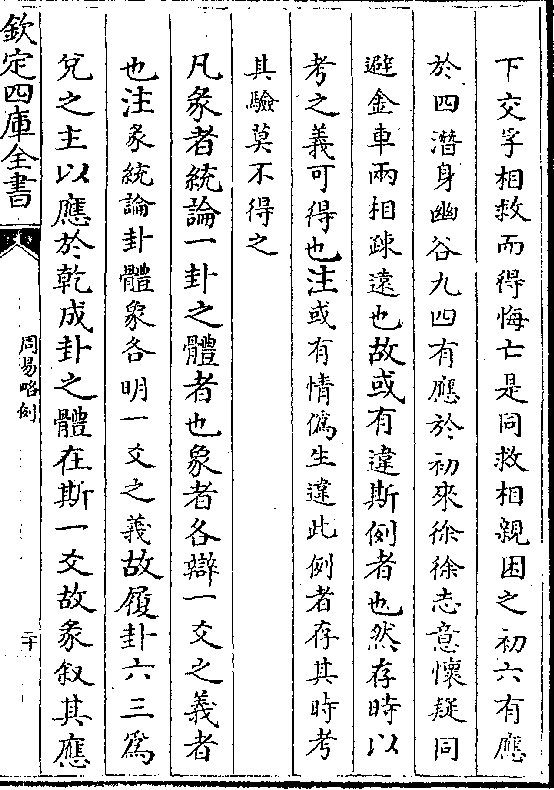 下交孚相救而得悔亡是同救相親困之初六有應
於四潛身幽谷九四有應於初來徐徐志意懷疑同
避金車兩相疎遠也故或有違斯例者也然存時以
考之義可得也注或有情偽生違此例者存其時考
其驗莫不得之
凡彖者統論一卦之體者也象者各辯一爻之義者
也注彖統論卦體象各明一爻之義故履卦六三為
兌之主以應於乾成卦之體在斯一爻故彖叙其應
欽定四庫全書
周易略例
二十